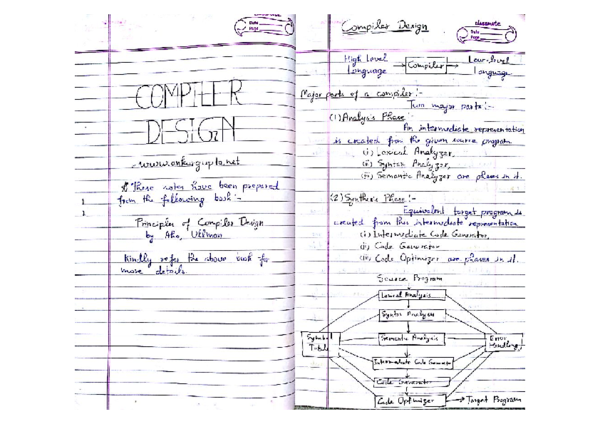 COMPILER
DESIGN
www.ankurgupta.net
* These notes have been prepared
from the following book :-
Principles of Compiler Design
by Aho, Ullman
Kindly refer the above book for
more details.
classmate
Date
Page
Compiler Design
High Level
Language
Compiler
Low-level
Language
Major parts of a compiler :-
Two major parts :-
(1) Analysis Phase :-
An intermediate representation
is created from the given source program
(i) Lexical Analyzer,
(ii) Syntax Analyzer,
(iii) Semantic Analyzer are phases in it.
(2) Synthesis Phase :-
Equivalent target program is
created from this intermediate representation
(i) Intermediate Code Generator,
(ii) Code Generator
(iii) Code Optimizer are phases in it.
Source Program
Lexical Analysis
Syntax Analysis
Symbol
Table
Semantic Analysis
Error
Handling
Intermediate Code Generator
Code Generator
Code Optimizer
Target Program